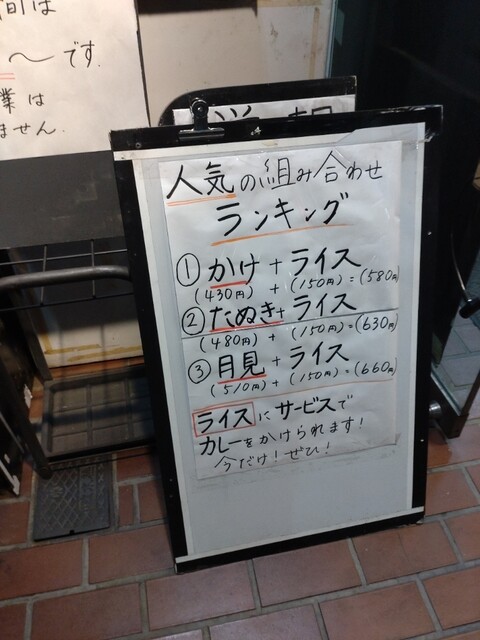 間は
〜です.
業は
ません.
人気の組み合わせ
ランキング
①かけ+ライス
(430円)+(150円)=(580円)
②たぬき+ライス
(480円)+(150円)=(630円)
③月見+ライス
(510円)+(150円)=(660円)
ライスにサービスで
カレーをかけられます!
今だけ!ぜひ!